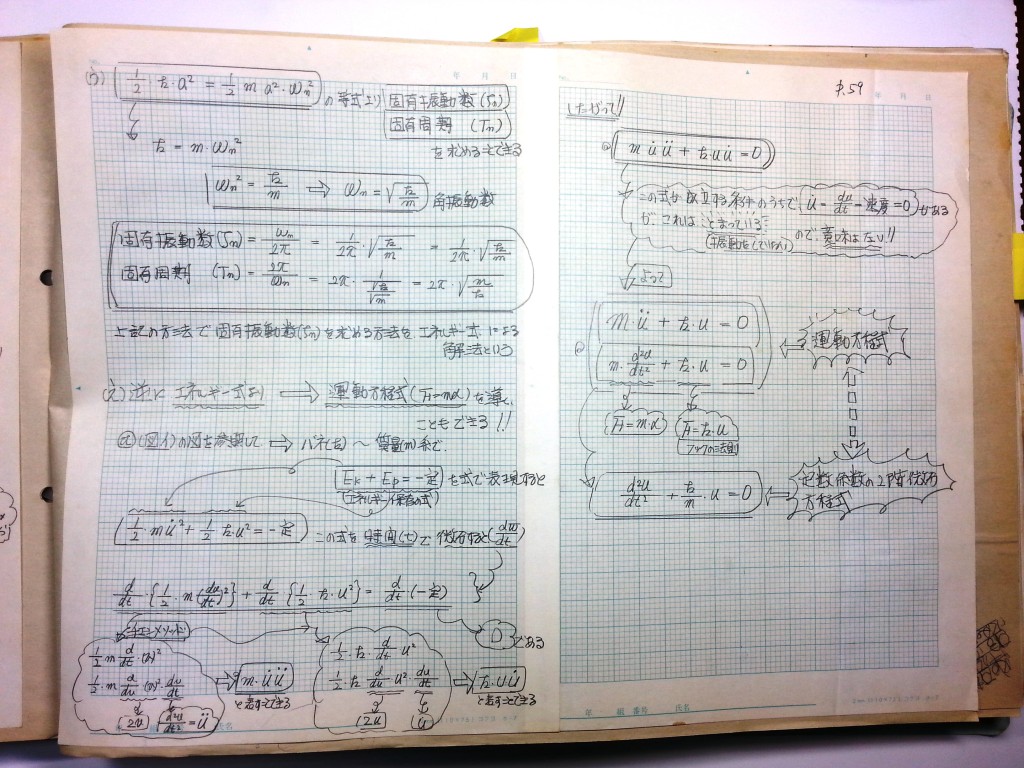 う) 1/2 k・a² = 1/2 m a²・ωn² の等式より 固有振動数(fn)
固有周期 (Tn)
を求めることできる
k = m・ωn²
ωn² = k/m ⇒ ωn = √(k/m) 角振動数
固有振動数(fn) = ωn/2π = 1/2π・√(k/m) = 1/2π・√(k/m)
固有周期 (Tn) = 2π/ωn = 2π・1/(√k/√m) = 2π・√(m/k)
上記の方法で固有振動数(fn)を求める方法をエネルギー式による
解法という
(え) 逆に エネルギー式より → 運動方程式(F=mα)を導く
こともできる!!
(図イ)の図を参照して ⇒ バネ(k)〜質量(m)系で、
Ek + Ep = 一定 を式で表現すると
(エネルギー保存の式)
1/2・m u̇² + 1/2 k・u² = 一定 この式を 時間(t)で 微分すると(du/dt)
d/dt・{1/2・m(du/dt)²} + d/dt {1/2・k・u²} = d/dt(一定)
0 である
1/2 m d/dt・(u̇)²
1/2・m d/du・(u̇)²・du/dt
(2u̇) d²u/dt² = ü
m・u̇ü
と表すことできる
1/2・k・d/dt u²
1/2・k d/du u²・du/dt
(2u) (u̇)
k・u u̇
と表すことできる
P.59
年 月 日
したがって!!
m u̇ ü + k・u u̇ = 0
この式が成立する条件のうちで u̇ = du/dt = 速度 = 0 がある
が、これは とまっている ので、意味はない!!
(振動をしていない)
よって
m・ü + k・u = 0
m・d²u/dt² + k・u = 0
運動方程式
F = m・α
F = k・u
フックの法則
d²u/dt² + k/m・u = 0
定数係数の2階微分
方程式
年 組 番号 氏名